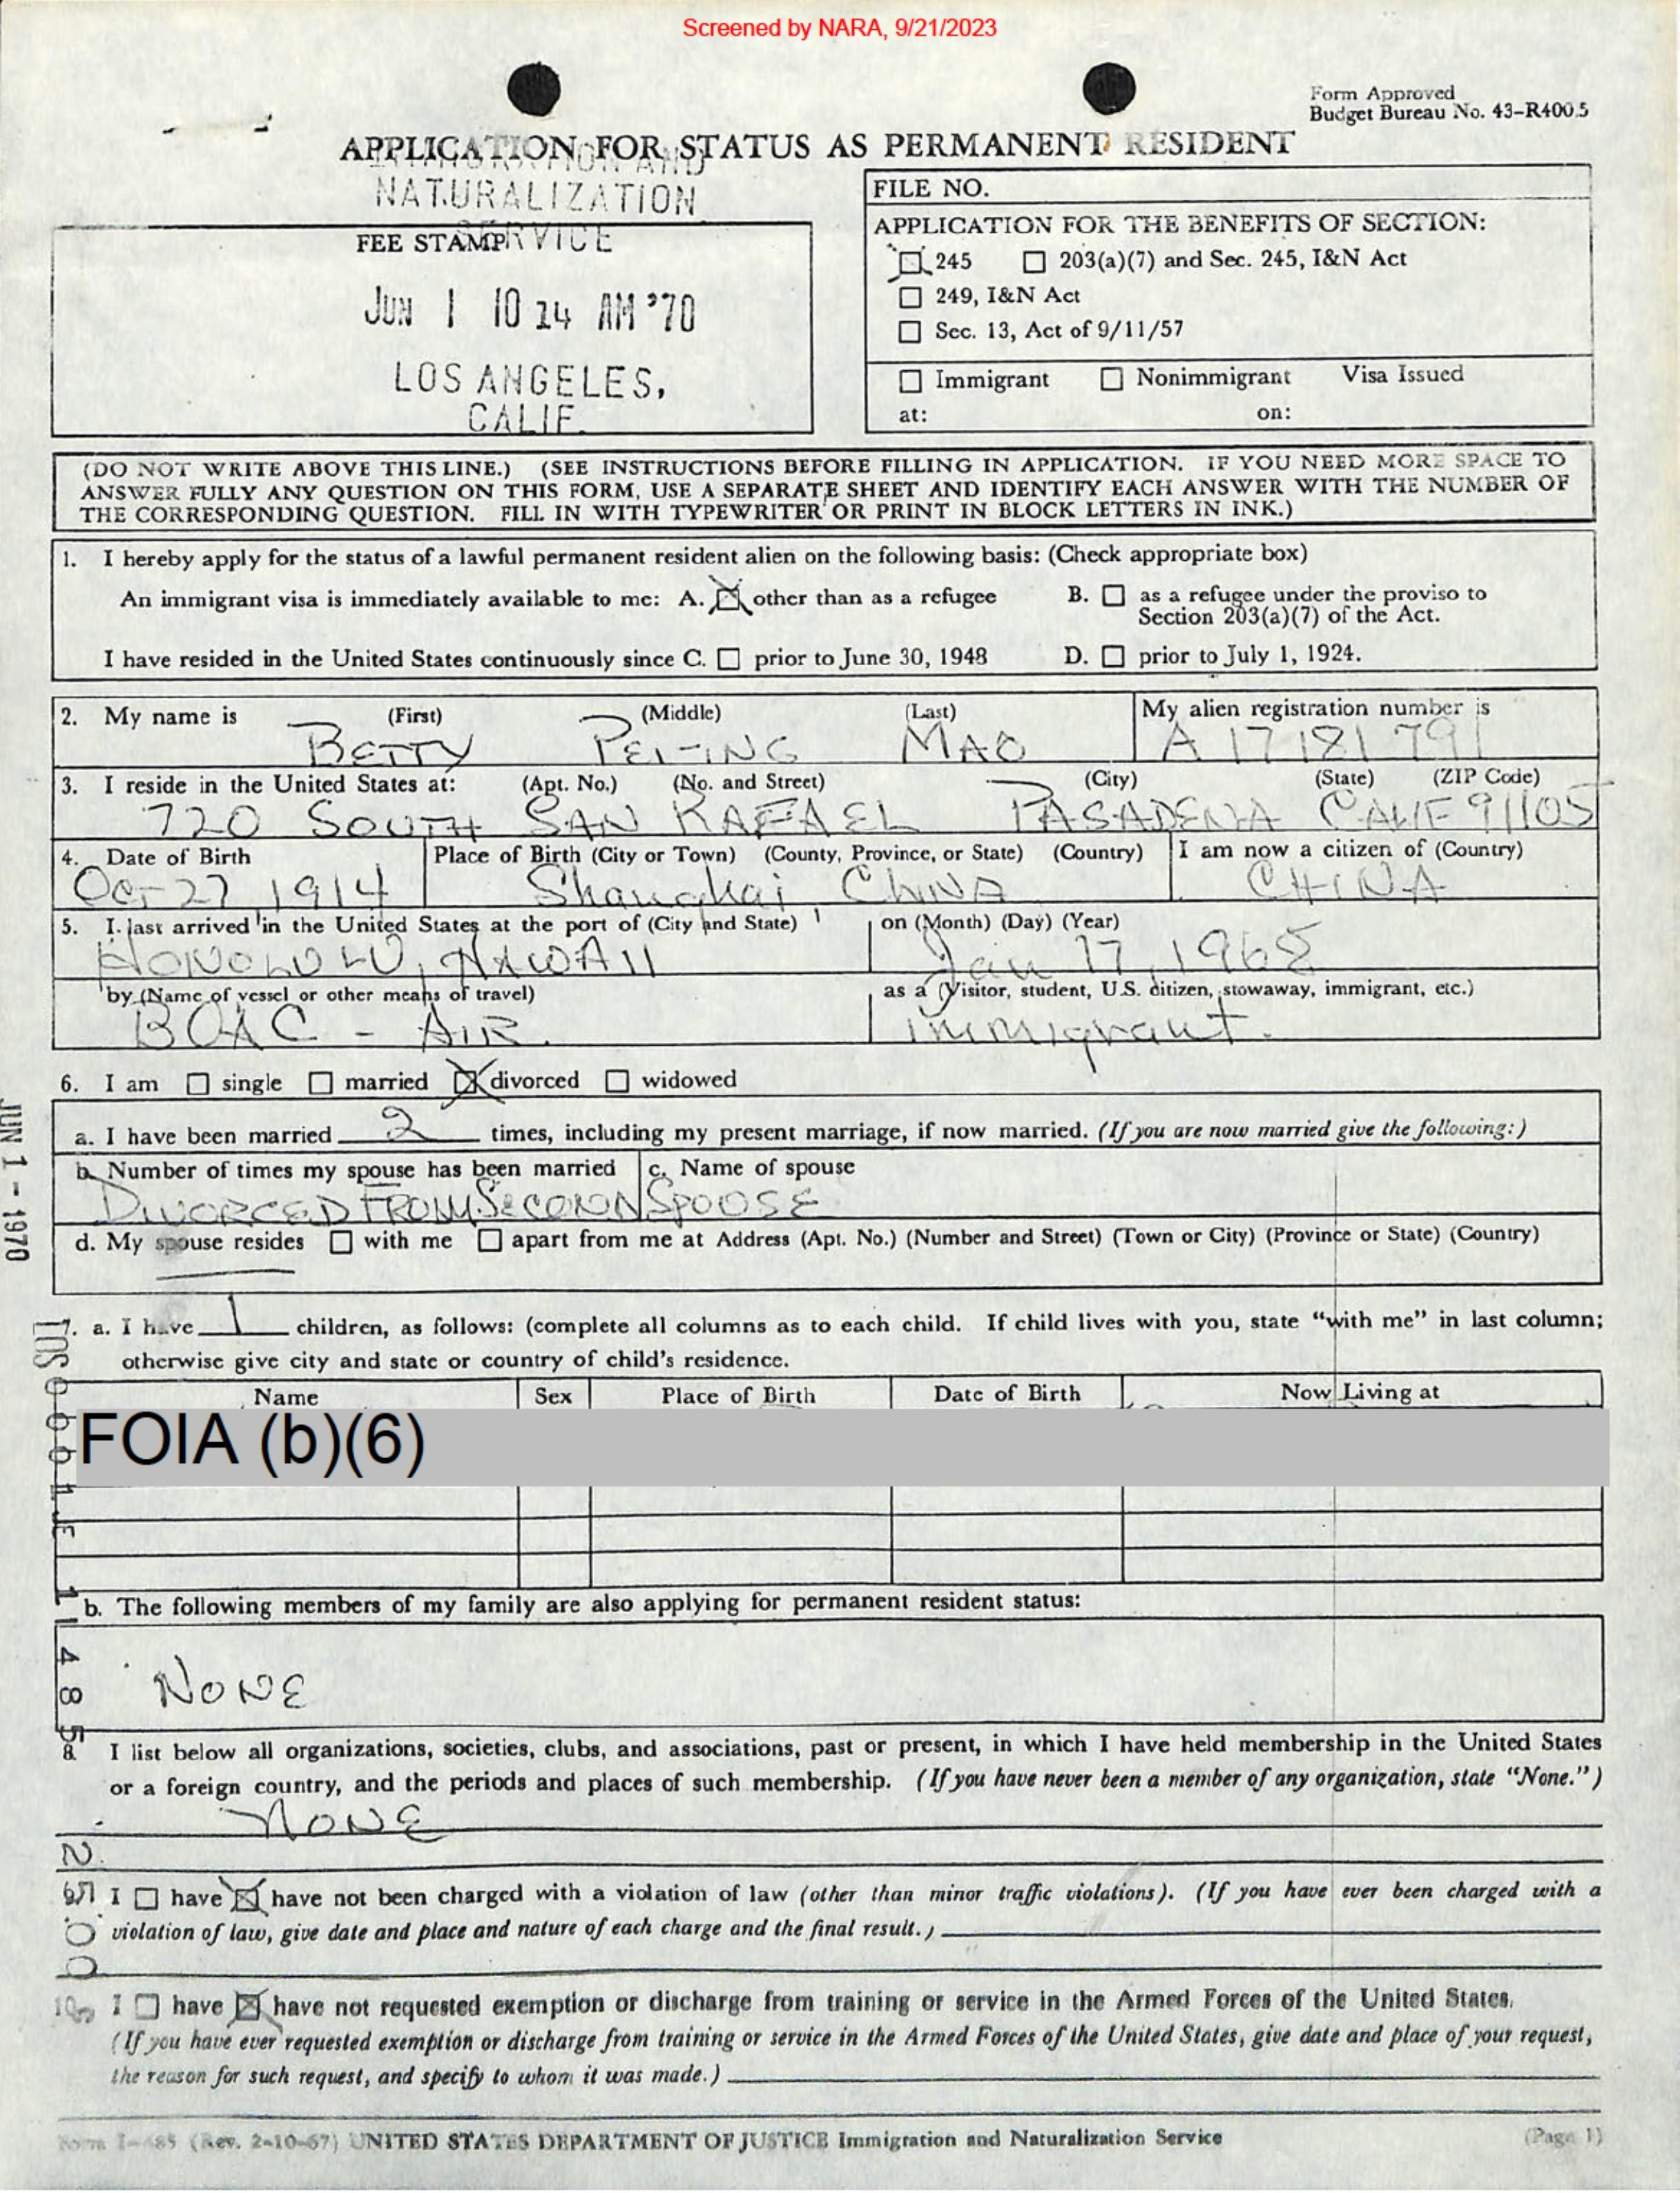 Screened by NARA, 9/21/2023
Form Approved
Budget Bureau No. 43-R400.5
APPLICATION FOR STATUS AS PERMANENT RESIDENT
NATURALIZATION
SERVICE
FEE STAMP
JUN 1 10 24 AM '70
LOS ANGELES,
CALIF.
FILE NO.
APPLICATION FOR THE BENEFITS OF SECTION:
☒ 245 ☐ 203(a)(7) and Sec. 245, I&N Act
☐ 249, I&N Act
☐ Sec. 13, Act of 9/11/57
☐ Immigrant ☐ Nonimmigrant Visa Issued
at: on:
(DO NOT WRITE ABOVE THIS LINE.) (SEE INSTRUCTIONS BEFORE FILLING IN APPLICATION. IF YOU NEED MORE SPACE TO
ANSWER FULLY ANY QUESTION ON THIS FORM, USE A SEPARATE SHEET AND IDENTIFY EACH ANSWER WITH THE NUMBER OF
THE CORRESPONDING QUESTION. FILL IN WITH TYPEWRITER OR PRINT IN BLOCK LETTERS IN INK.)
1. I hereby apply for the status of a lawful permanent resident alien on the following basis: (Check appropriate box)
An immigrant visa is immediately available to me: A. ☒ other than as a refugee B. ☐ as a refugee under the proviso to
Section 203(a)(7) of the Act.
I have resided in the United States continuously since C. ☐ prior to June 30, 1948 D. ☐ prior to July 1, 1924.
2. My name is (First) (Middle) (Last) My alien registration number is
BETTY PEI-ING MAO A 17 181 791
3. I reside in the United States at: (Apt. No.) (No. and Street) (City) (State) (ZIP Code)
720 SOUTH SAN RAFAEL PASADENA CALIF 91105
4. Date of Birth Place of Birth (City or Town) (County, Province, or State) (Country) I am now a citizen of (Country)
Oct 27, 1914 Shanghai, CHINA CHINA
5. I last arrived in the United States at the port of (City and State) on (Month) (Day) (Year)
HONOLULU, HAWAII Jan 17, 1968
by (Name of vessel or other means of travel) as a (Visitor, student, U.S. citizen, stowaway, immigrant, etc.)
BOAC - AIR. immigrant.
6. I am ☐ single ☐ married ☒ divorced ☐ widowed
a. I have been married 2 times, including my present marriage, if now married. (If you are now married give the following:)
b. Number of times my spouse has been married c. Name of spouse
DIVORCED FROM SECOND SPOUSE
d. My spouse resides ☐ with me ☐ apart from me at Address (Apt. No.) (Number and Street) (Town or City) (Province or State) (Country)
JUN 1 - 1970
7. a. I have 1 children, as follows: (complete all columns as to each child. If child lives with you, state "with me" in last column;
otherwise give city and state or country of child's residence.
Name Sex Place of Birth Date of Birth Now Living at
FOIA (b)(6)
b. The following members of my family are also applying for permanent resident status:
NONE
8. I list below all organizations, societies, clubs, and associations, past or present, in which I have held membership in the United States
or a foreign country, and the periods and places of such membership. (If you have never been a member of any organization, state "None.")
NONE
I ☐ have ☒ have not been charged with a violation of law (other than minor traffic violations). (If you have ever been charged with a
violation of law, give date and place and nature of each charge and the final result.)
10. I ☐ have ☒ have not requested exemption or discharge from training or service in the Armed Forces of the United States.
(If you have ever requested exemption or discharge from training or service in the Armed Forces of the United States, give date and place of your request,
the reason for such request, and specify to whom it was made.)
Form I-485 (Rev. 2-10-67) UNITED STATES DEPARTMENT OF JUSTICE Immigration and Naturalization Service (Page 1)